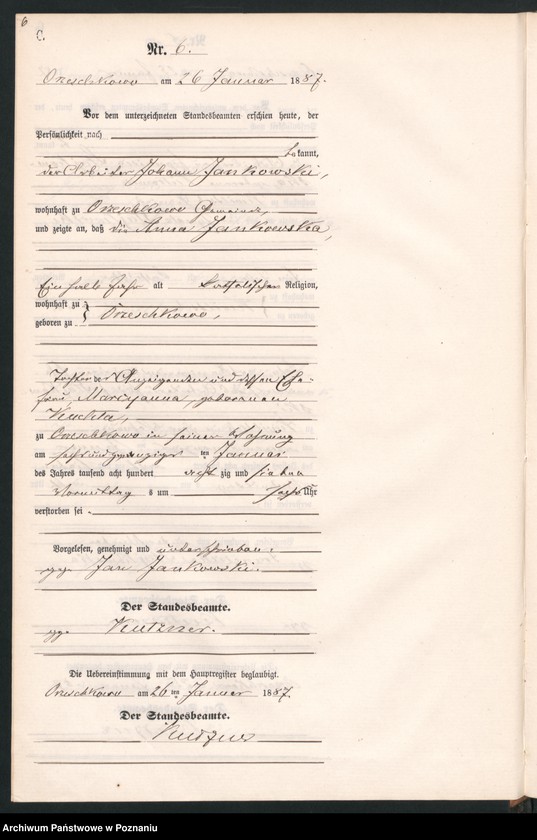 6
C.
Nr. 6.
Orzeschkowo am 26 Januar 1887.
Vor dem unterzeichneten Standesbeamten erschien heute, der
Persönlichkeit nach
bekannt,
der Arbeiter Johann Jankowski,
wohnhaft zu Orzeschkowo Gemeinde,
und zeigte an, daß die Anna Jankowska,
Ein halb Jahr alt katolischer Religion,
wohnhaft zu
geboren zu Orzeschkowo,
Tochter des Anzeigenden und dessen Ehe-
frau, Marcyanna, geborenen
Kuchta,
zu Orzeschkowo in seiner Wohnung
am sechsundzwanzigsten Januar
des Jahres tausend acht hundert acht zig und sieben
Vormittags um sechs Uhr
verstorben sei.
Vorgelesen, genehmigt und unterschrieben:
gez. Jan Jankowski.
Der Standesbeamte.
gez. Kutzner.
Die Uebereinstimmung mit dem Hauptregister beglaubigt.
Orzeschkowo am 26 ten Januar 1887.
Der Standesbeamte.
Kutzner
Archiwum Państwowe w Poznaniu